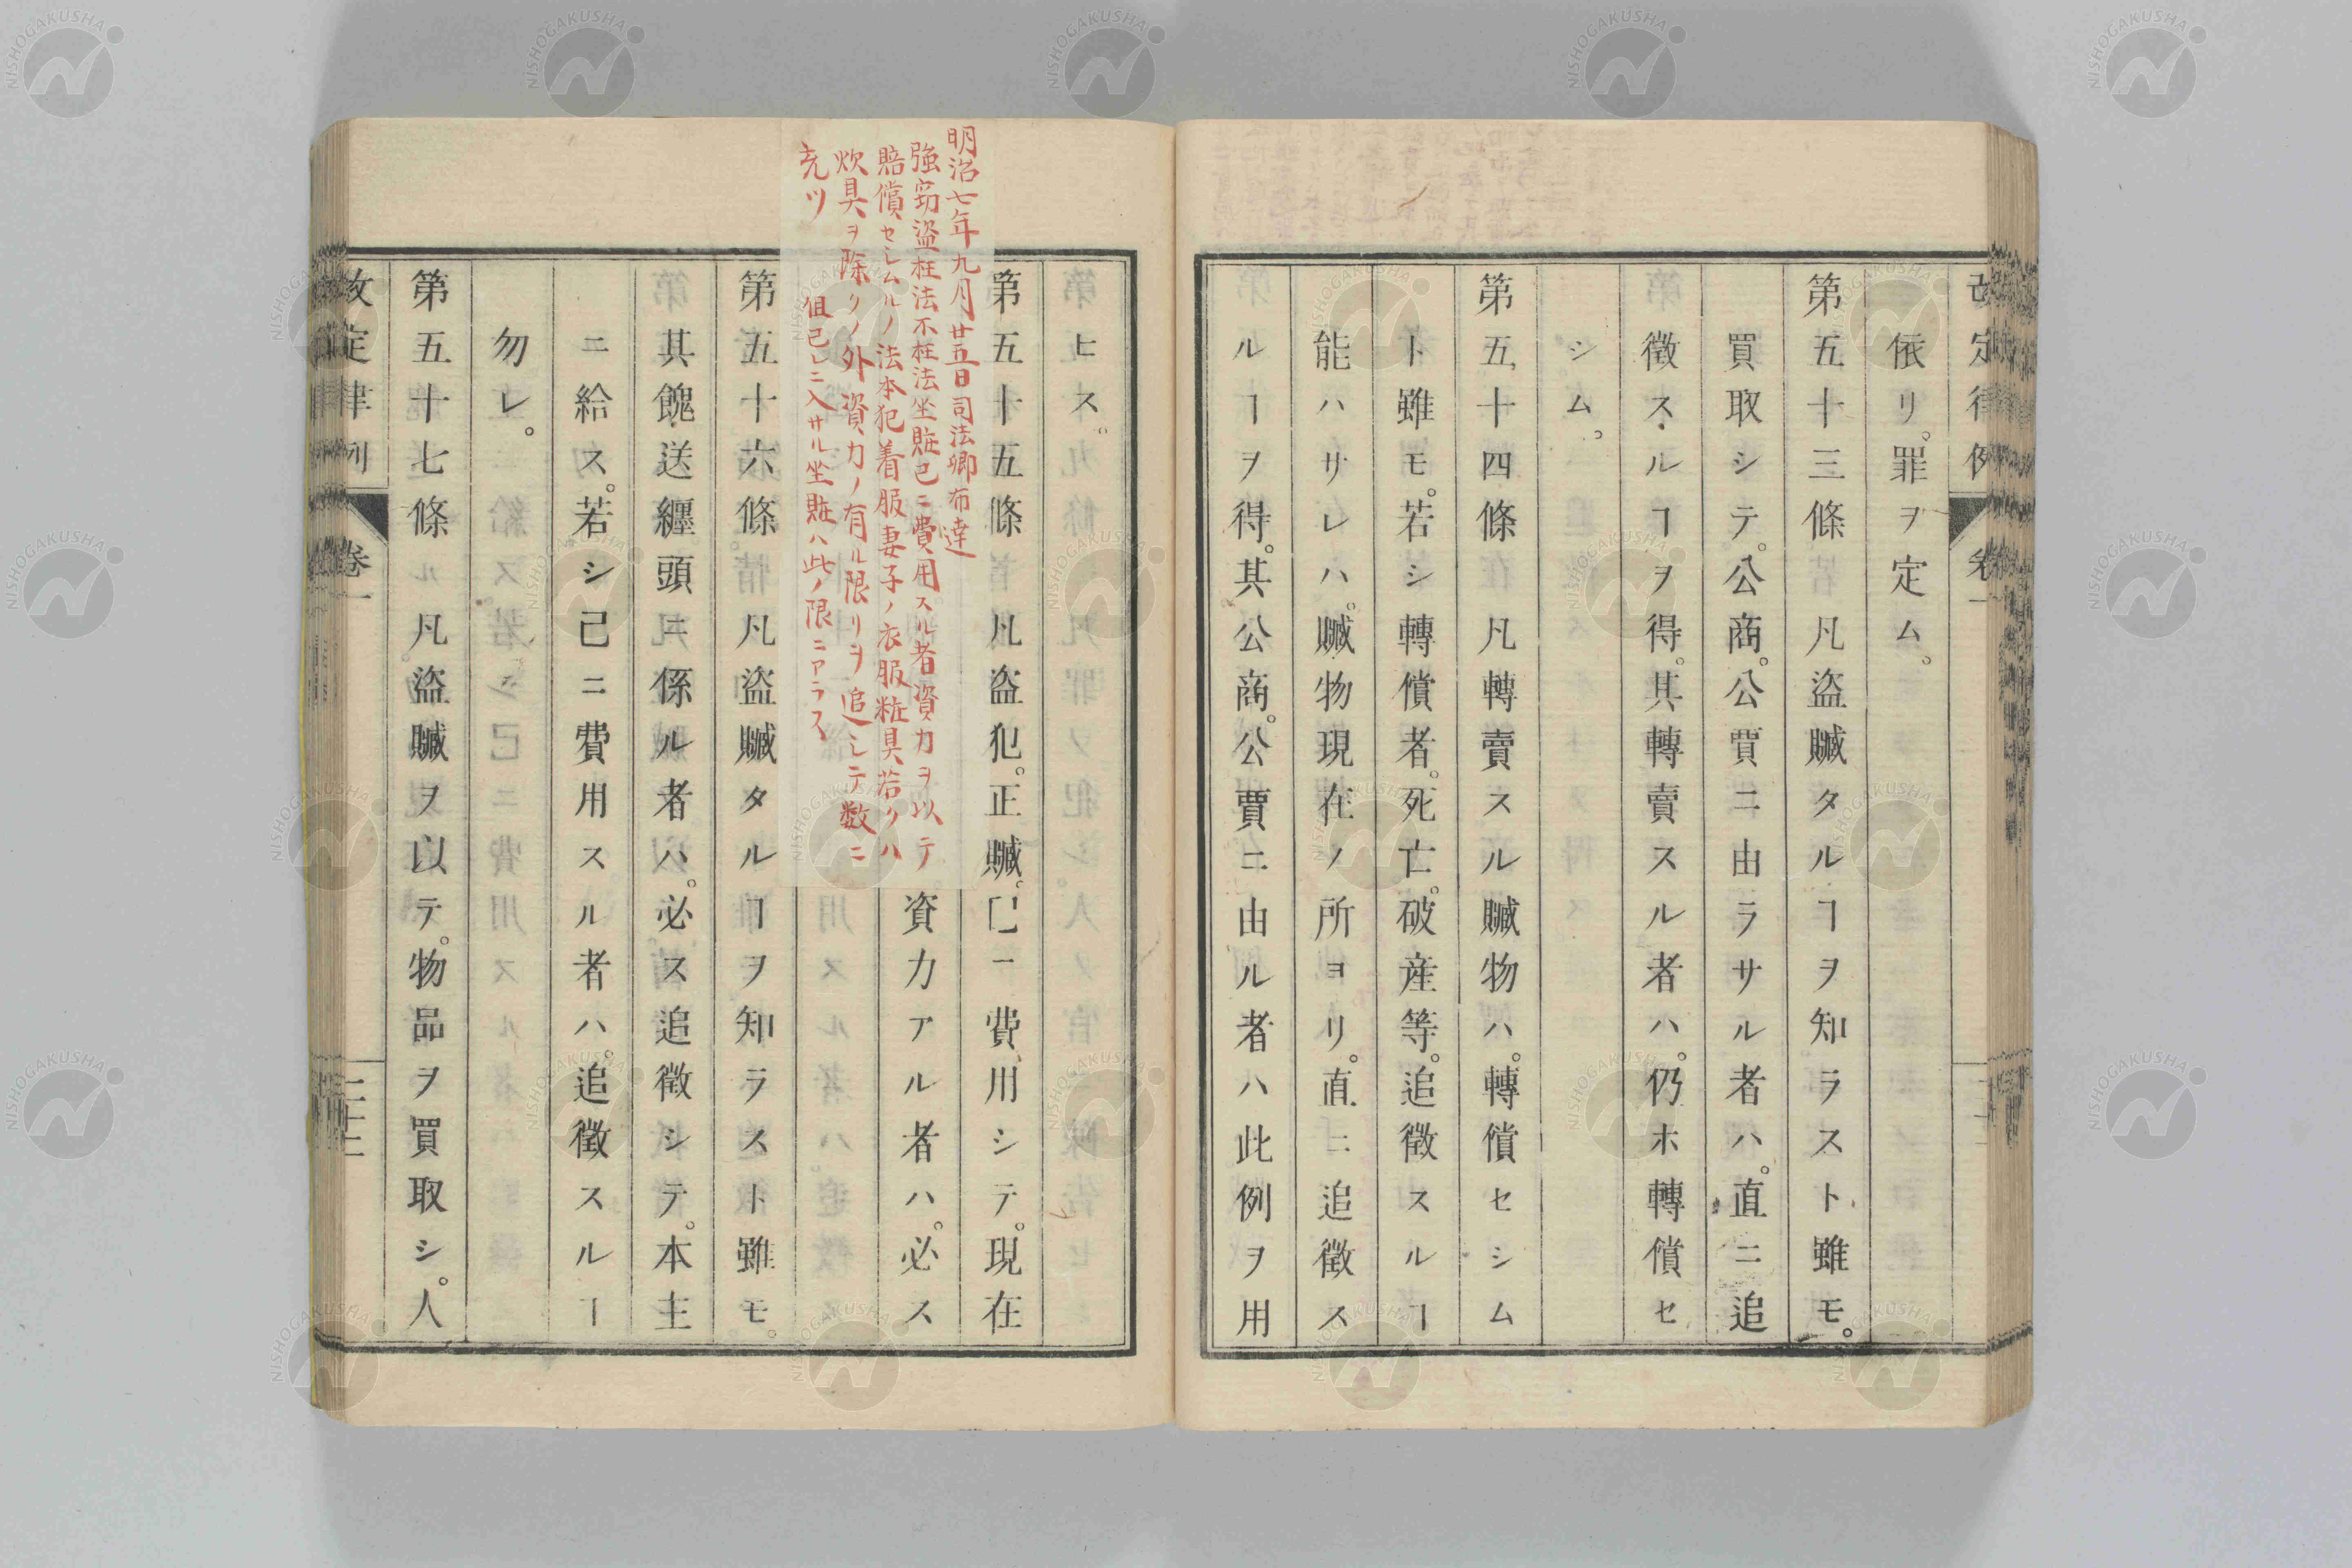 改定律例 卷一
依リ。罪ヲ定ム。
第五十三條 凡盜贓タルヿヲ知ラスト雖モ。
買取シテ。公商。公賈ニ由ラサル者ハ。直ニ追
徵スルヿヲ得。其轉賣スル者ハ。仍ホ轉償セ
シム。
第五十四條 凡轉賣スル贓物ハ。轉償セシム
ト雖モ。若シ轉償者。死亡。破産等。追徵スルヿ
能ハサレハ。贓物現在ノ所ヨリ。直ニ追徵ス
ルヿヲ得。其公商。公賈ニ由ル者ハ此例ヲ用
ヒス。
第五十五條 凡盜犯。正贓。已ニ費用シテ。現在
資力アル者ハ。必ス
明治七年九月廿五日司法卿布達
強窃盜枉法不枉法坐贓已ニ費用スル者資力ヲ以テ
賠償セシムルノ法本犯着服妻子ノ衣服粧具若クハ
炊具ヲ除クノ外資力ノ有ル限リヲ追シテ数ニ
充ツ 但已レニ入サル坐贓ハ此ノ限ニアラス
第五十六條 凡盜贓タルヿヲ知ラスト雖モ。
其餽送纏頭ニ係ル者ハ。必ス追徵シテ。本主
ニ給ス。若シ已ニ費用スル者ハ。追徵スルヿ
勿レ。
第五十七條 凡盜贓ヲ以テ。物品ヲ買取シ。人
改定律例 卷一 二十二
NISHOGAKUSHA